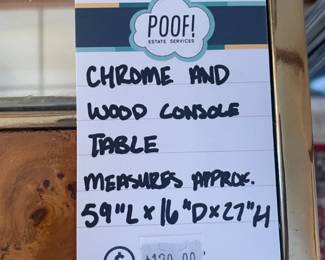 POOF!
ESTATE SERVICES
CHROME AND
WOOD CONSOLE
TABLE
MEASURES APPROX.
59"L x 16"D x 27"H
$